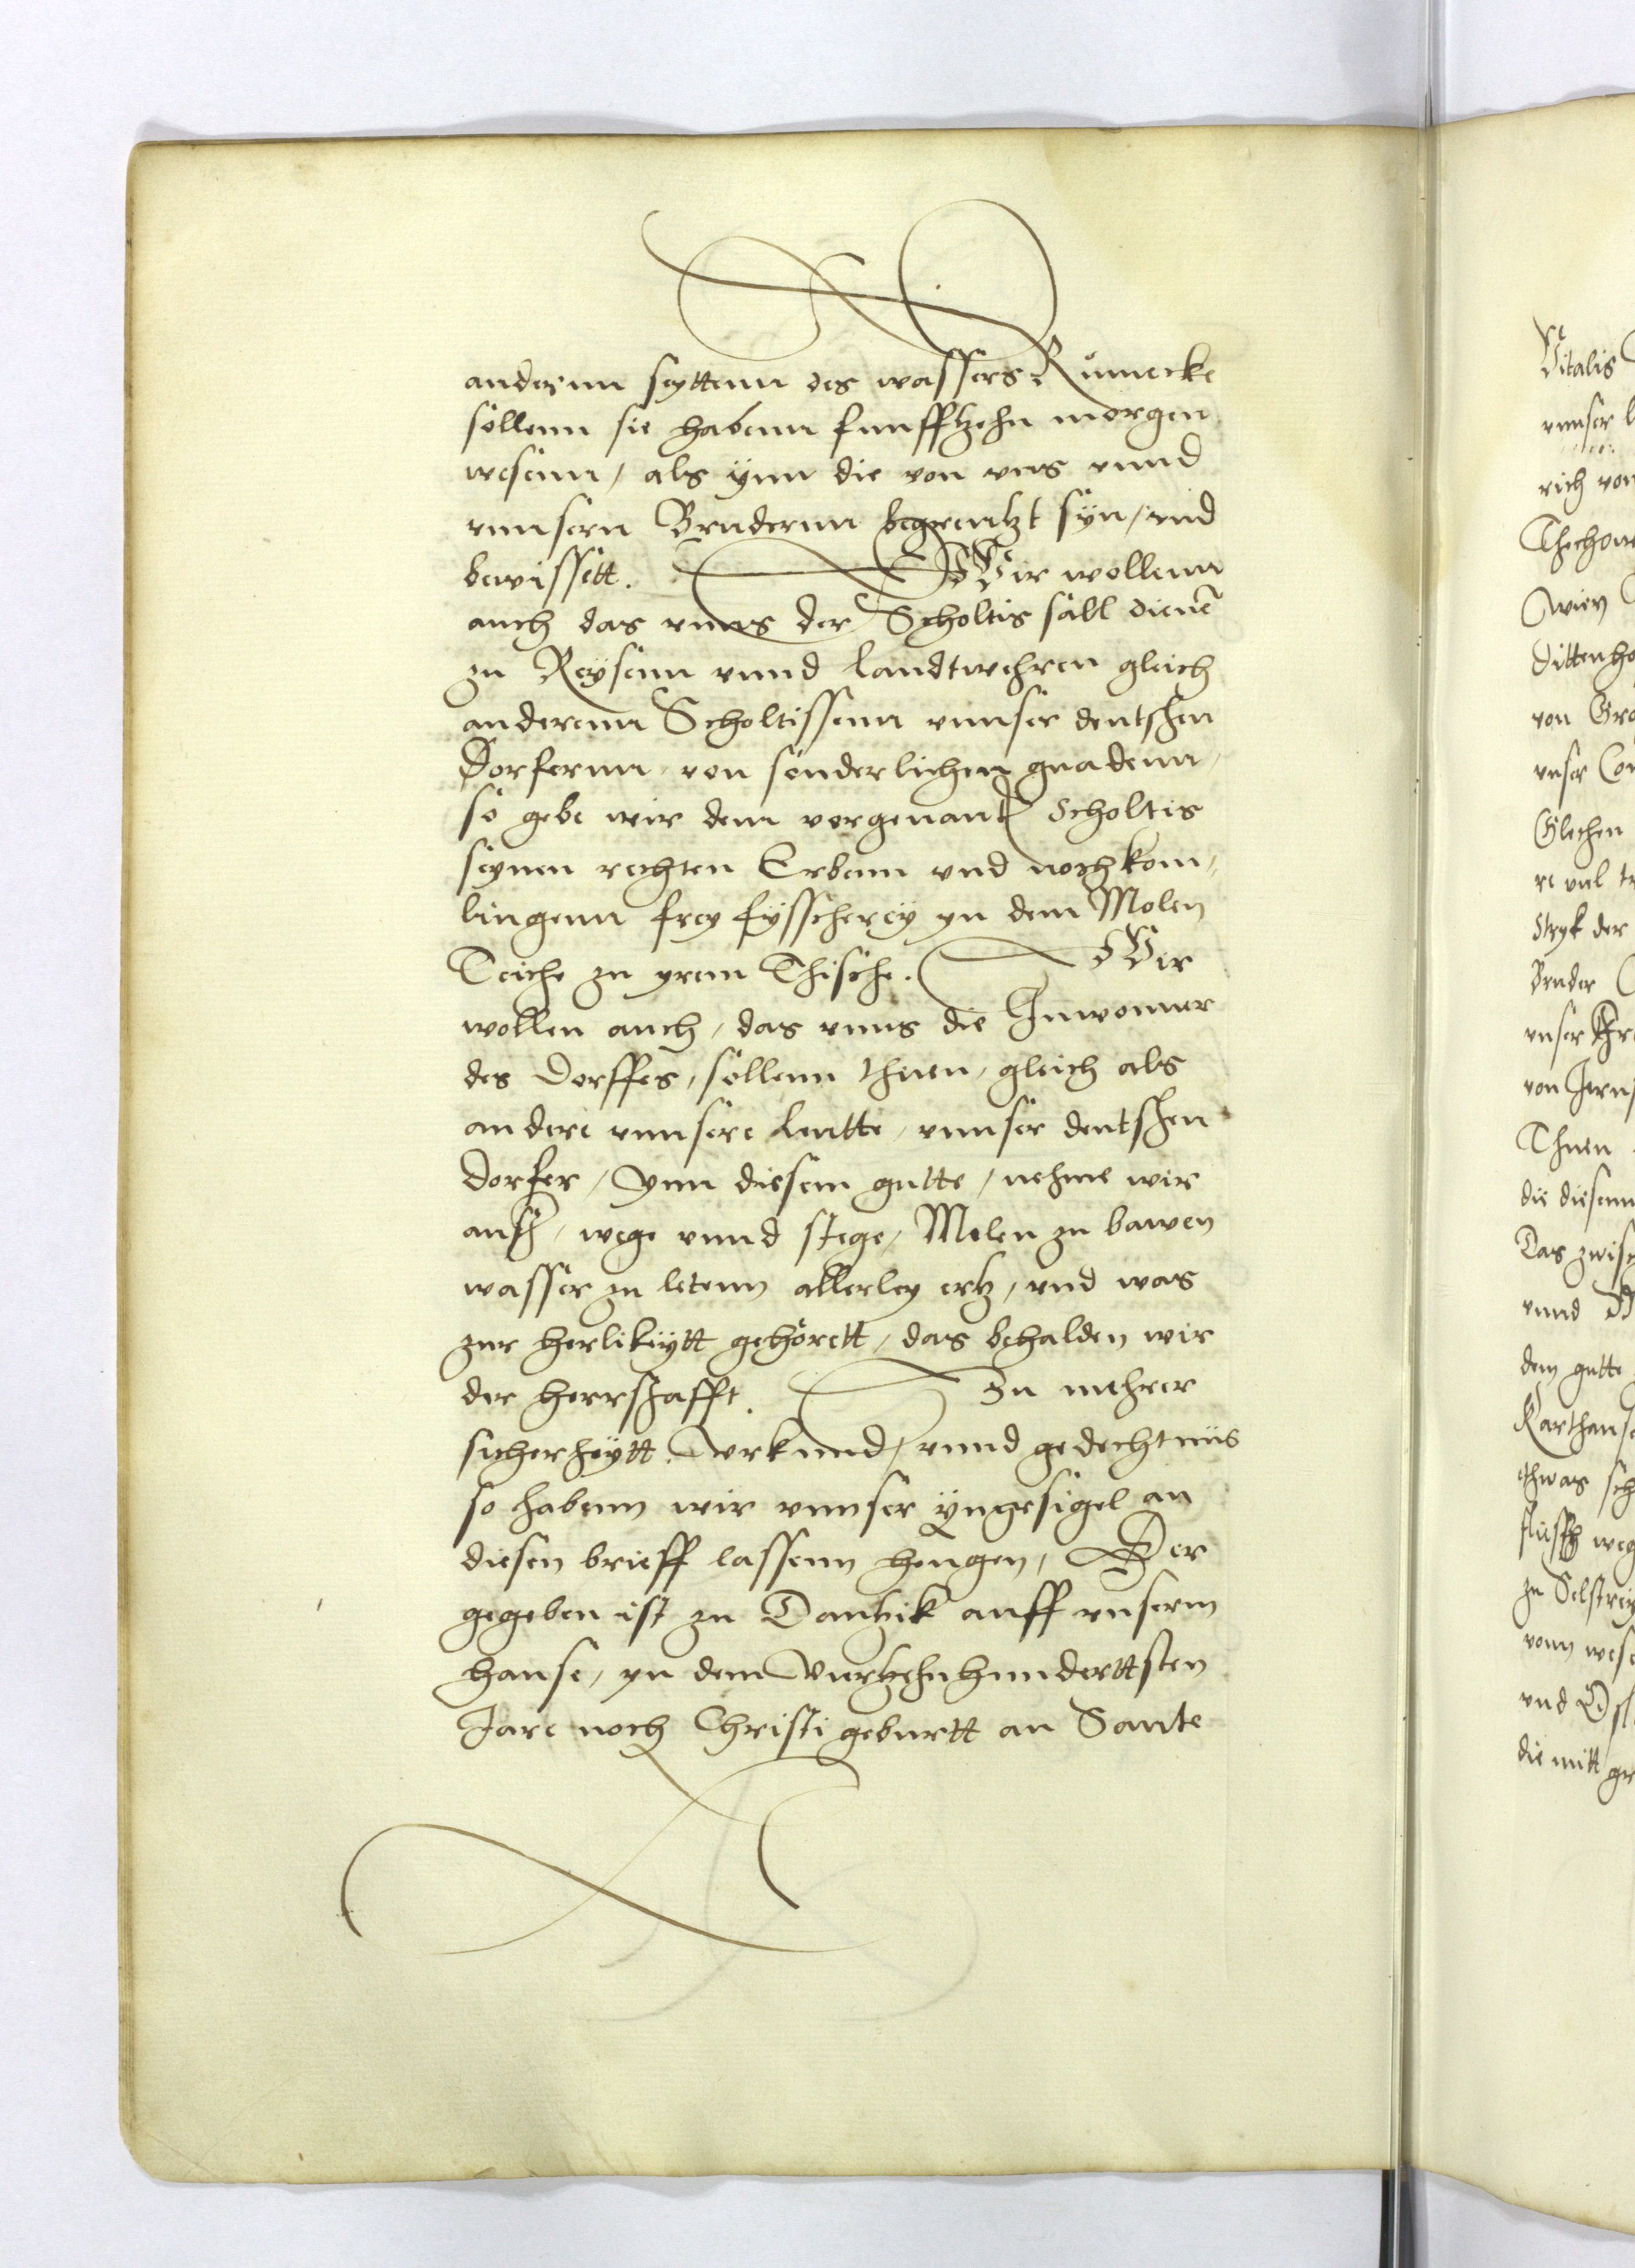 andernn seyttenn des wassers Rumecke
sollenn sie habenn funfftzehn morgen
wesenn, als ynn die von vns vnnd
vnnsern Brudernn begrentzt syn, vnd
bewissett. Wir wollenn
auch das vnns der Scholtis sall dienē
zu Reysenn vnnd landtwehren gleich
anderenn Scholtissenn vnnser deutschen
Dorfernn, von sonderlichen gnadenn,
so gebe wir dem vorgenantē Scholtis
seynen rechten Erbenn vnd nochkom,
lingenn frey fysscherey yn dem Molen
Teiche zu yrem Thische. Wir
wollen auch, das vnns die Inwonner
des Dorffes, sollenn thuen, gleich als
andere vnnsere leutte, vnnser deutschen
dorfer, Ynn diesem gutte, nehme wir
ausz, wege vnnd stege, Molen zu bawen
wasser zu letenn allerley ertz, vnd was
zur herlikeytt gehörett, das behalden wir
der herrschafft. Zu mehrer
sicherheytt. Vrkund, vnnd gedechtnüs
so habenn wir vnnser yngesigel an
diesen brieff lassenn hengen, Der
gegeben ist zu Dantzik auff vnserm
hause, yn dem Viertzehnhunderttsten
Jare noch Christi geburtt an Sante
Vitalis
vnnser
rich von
Dittenho
von Gro
vnser Con
Glechen
re vnl tr
Stryk der
Bruder
vnser
Thuen
die diesenn
Das zwisc
vnnd
dem gutte
Karthause
ethwas sch
weg
zu Selstrey
vonn wese
vnd
die mitt gr